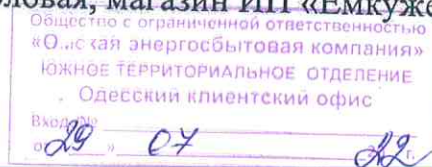 ловая, магазин ИП «Емкуже
Общество с ограниченной ответственностью
энергосбытовая компания»
ЮЖНОЕ ТЕРРИТОРИАЛЬНОЕ ОТДЕЛЕНИЕ
Одесский клиентский офис
Вход. №
29 » 07 22 г.